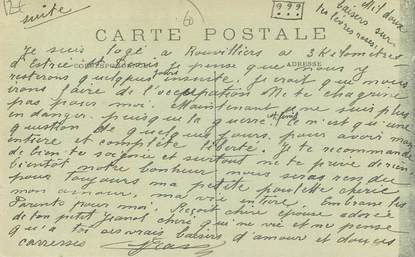 suite
Mil doux
baisers sur
tes lèvres roses
CARTE POSTALE
CORRESPONDANCE ADRESSE
Je suis logé a Rouvilliers a 3 Kilomètres
d'Estrée St Denis je pense que nous y
resterons quelques jours insuite je crait que nous
irons faire de l'occupation Ne te chagrine
pas pour moi. Maintenant je ne suis plus
en danger. puisque la guerre est fini ce n'est qu'une
question de quelques jours, pour avoir mon
entière et complète liberté. Je te recommande
de bien te soigné et surtout ne te prive de rien
bientôt notre bonheur nous seras rendu
pour toujours ma petite poulette cherie
mon amour, ma vie entière. Embrasse les
Parents pour moi. Reçoit chère épouse adorée
de ton petit Jeanot cheri qui ne vie et ne pense
qu'a toi ses vrais baisers d'amour et douces
caresses Jean